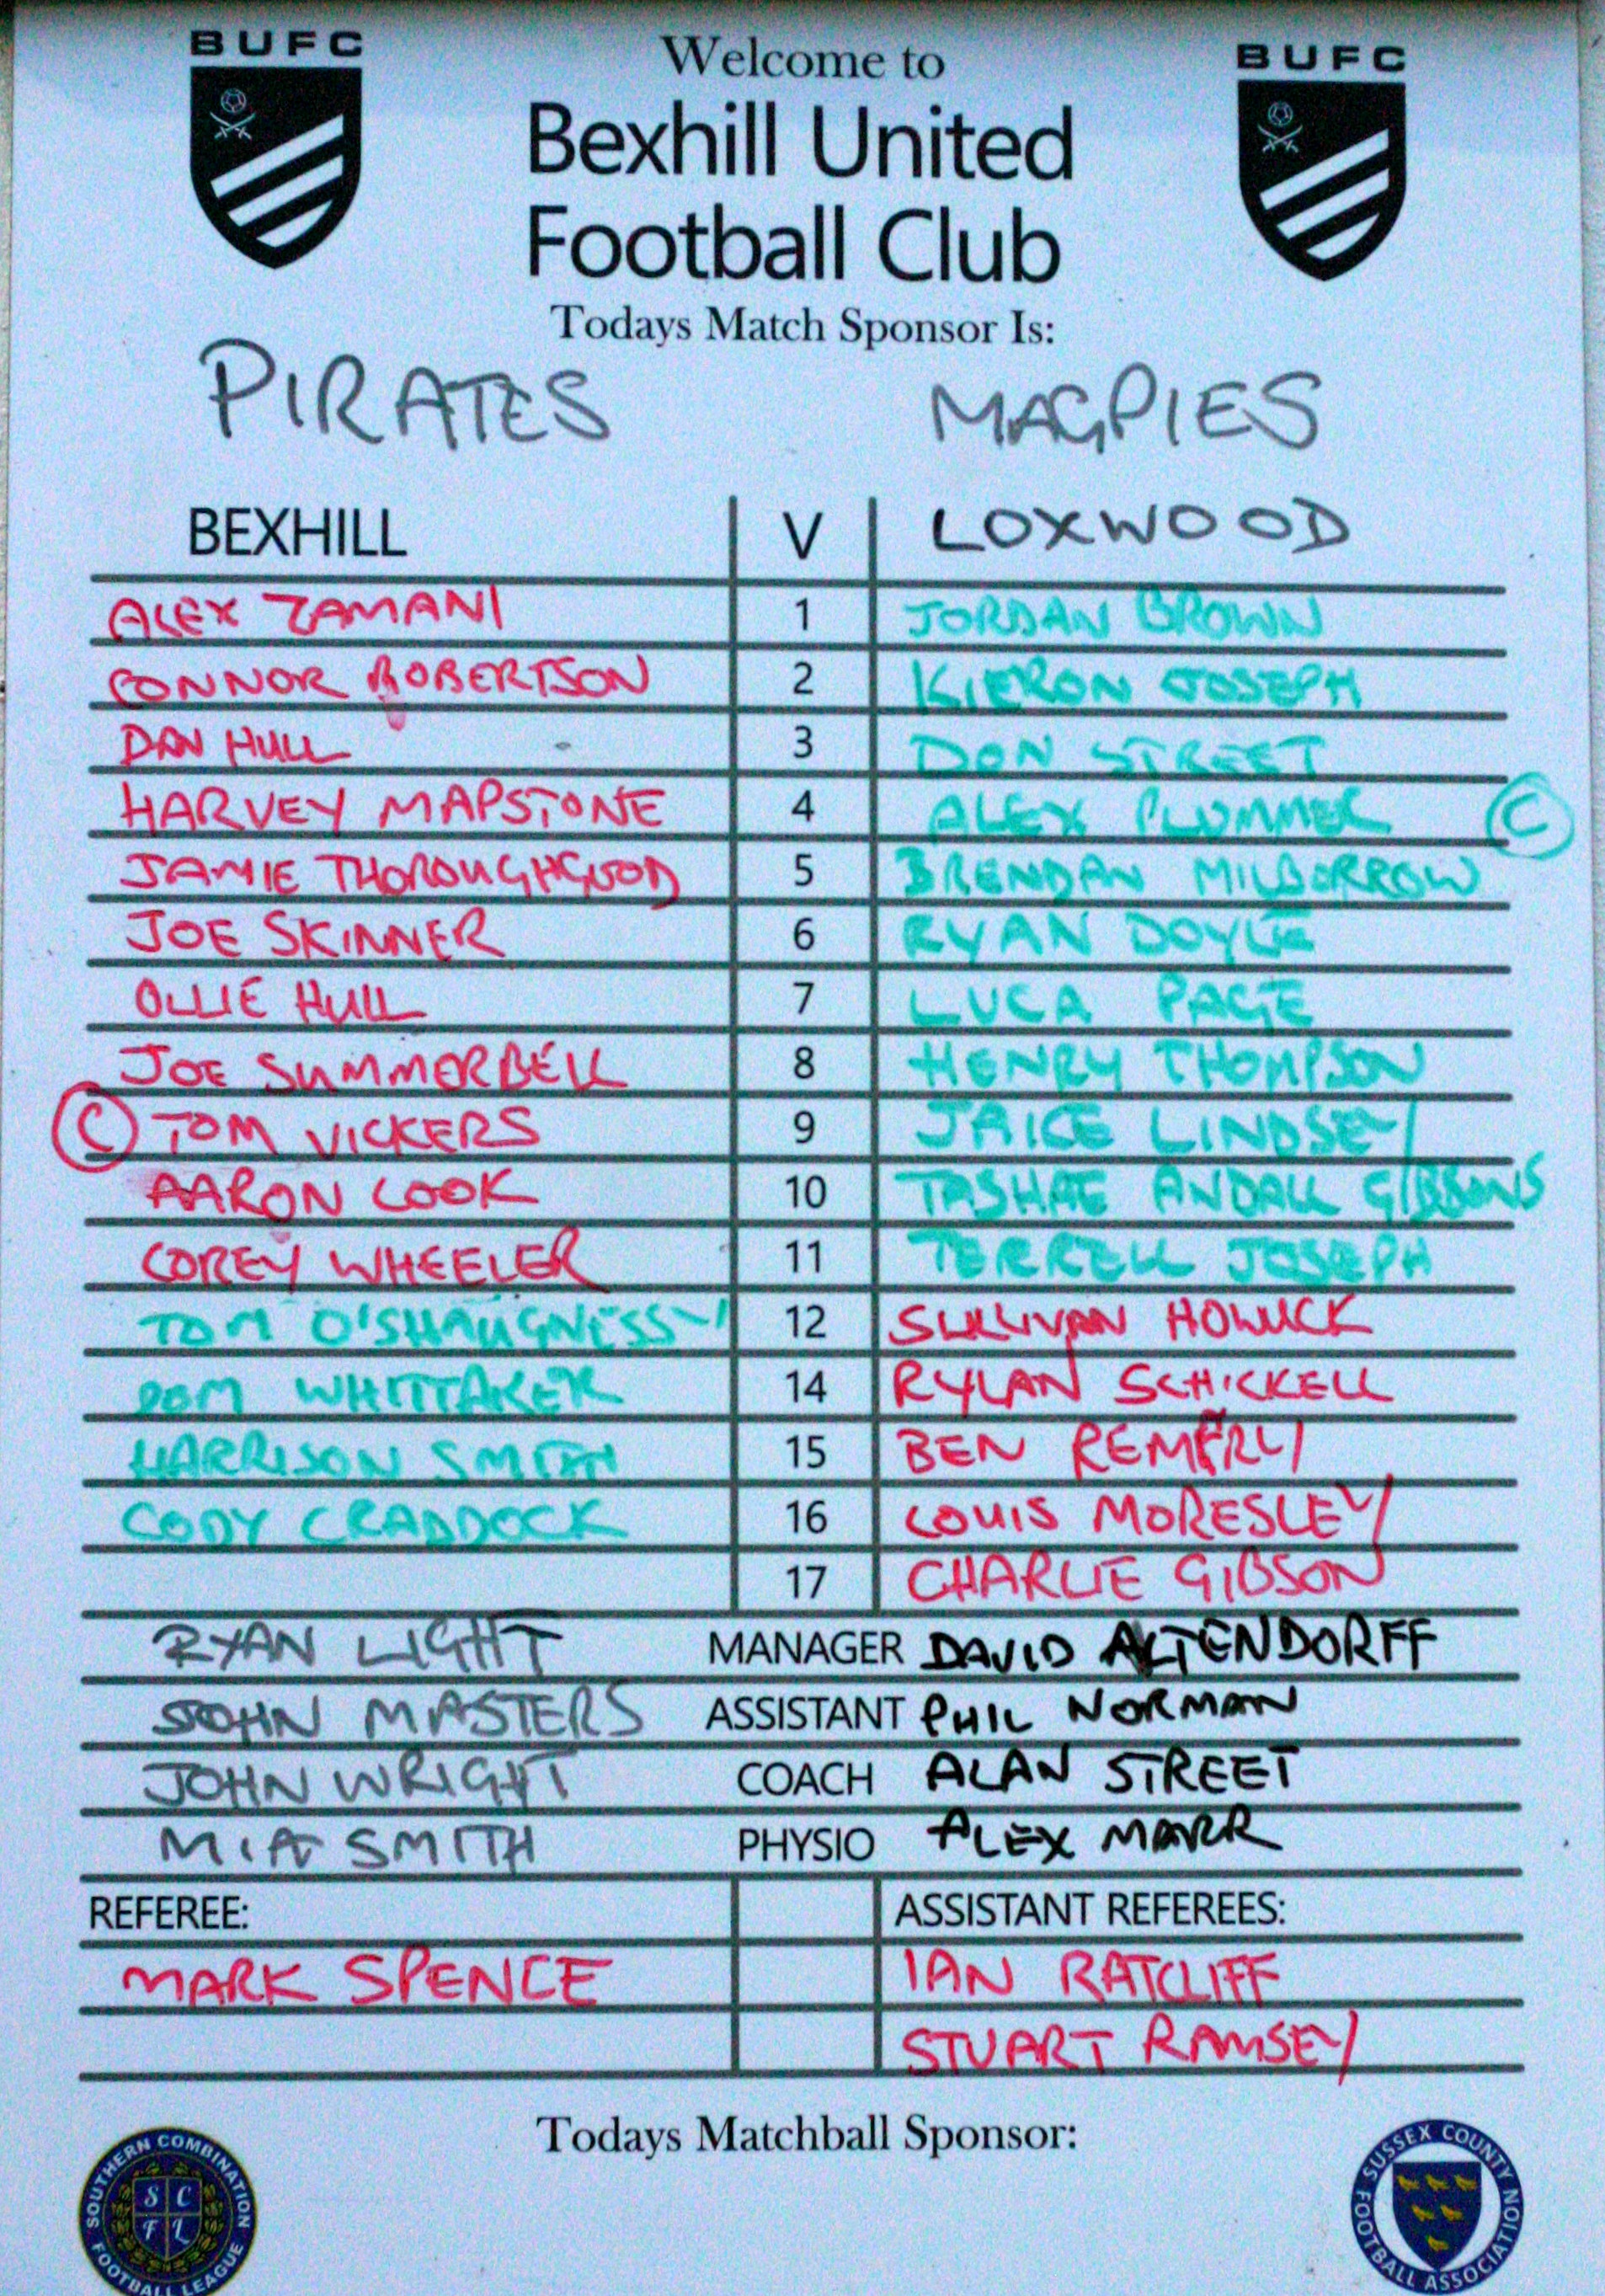 BUFC
Welcome to
BUFC
Bexhill United
Football Club
Todays Match Sponsor Is:
PIRATES MAGPIES
BEXHILL V LOXWOOD
ALEX ZAMANI 1 JORDAN BROWN
CONNOR ROBERTSON 2 KIERON JOSEPH
DAN HULL 3 DON STREET
HARVEY MAPSTONE 4 ALEX PLUMMER C
JAMIE THOROUGHGOOD 5 BRENDAN MILBORROW
JOE SKINNER 6 RYAN DOYLE
OLLIE HULL 7 LUCA PAGE
JOE SUMMERBELL 8 HENRY THOMPSON
C TOM VICKERS 9 JAICE LINDSEY
AARON COOK 10 TASHAE ANDALL GIBBONS
COREY WHEELER 11 TERRELL JOSEPH
TOM O'SHAUGNESSY 12 SULLIVAN
DOM WHITTAKER 14 RYLAN SCHICKELL
HARRISON SMITH 15 BEN
CODY CRADDOCK 16 LOUIS MORESLEY
17 CHARLIE GIBSON
RYAN LIGHT MANAGER DAVID ALTENDORFF
JOHN MASTERS ASSISTANT PHIL NORMAN
JOHN WRIGHT COACH ALAN STREET
MIA SMITH PHYSIO ALEX MARR
REFEREE: ASSISTANT REFEREES:
MARK SPENCE IAN RATCLIFF
STUART RAMSEY
Todays Matchball Sponsor:
SOUTHERN COMBINATION FOOTBALL LEAGUE
S C
F L
SUSSEX COUNTY FOOTBALL ASSOCIATION